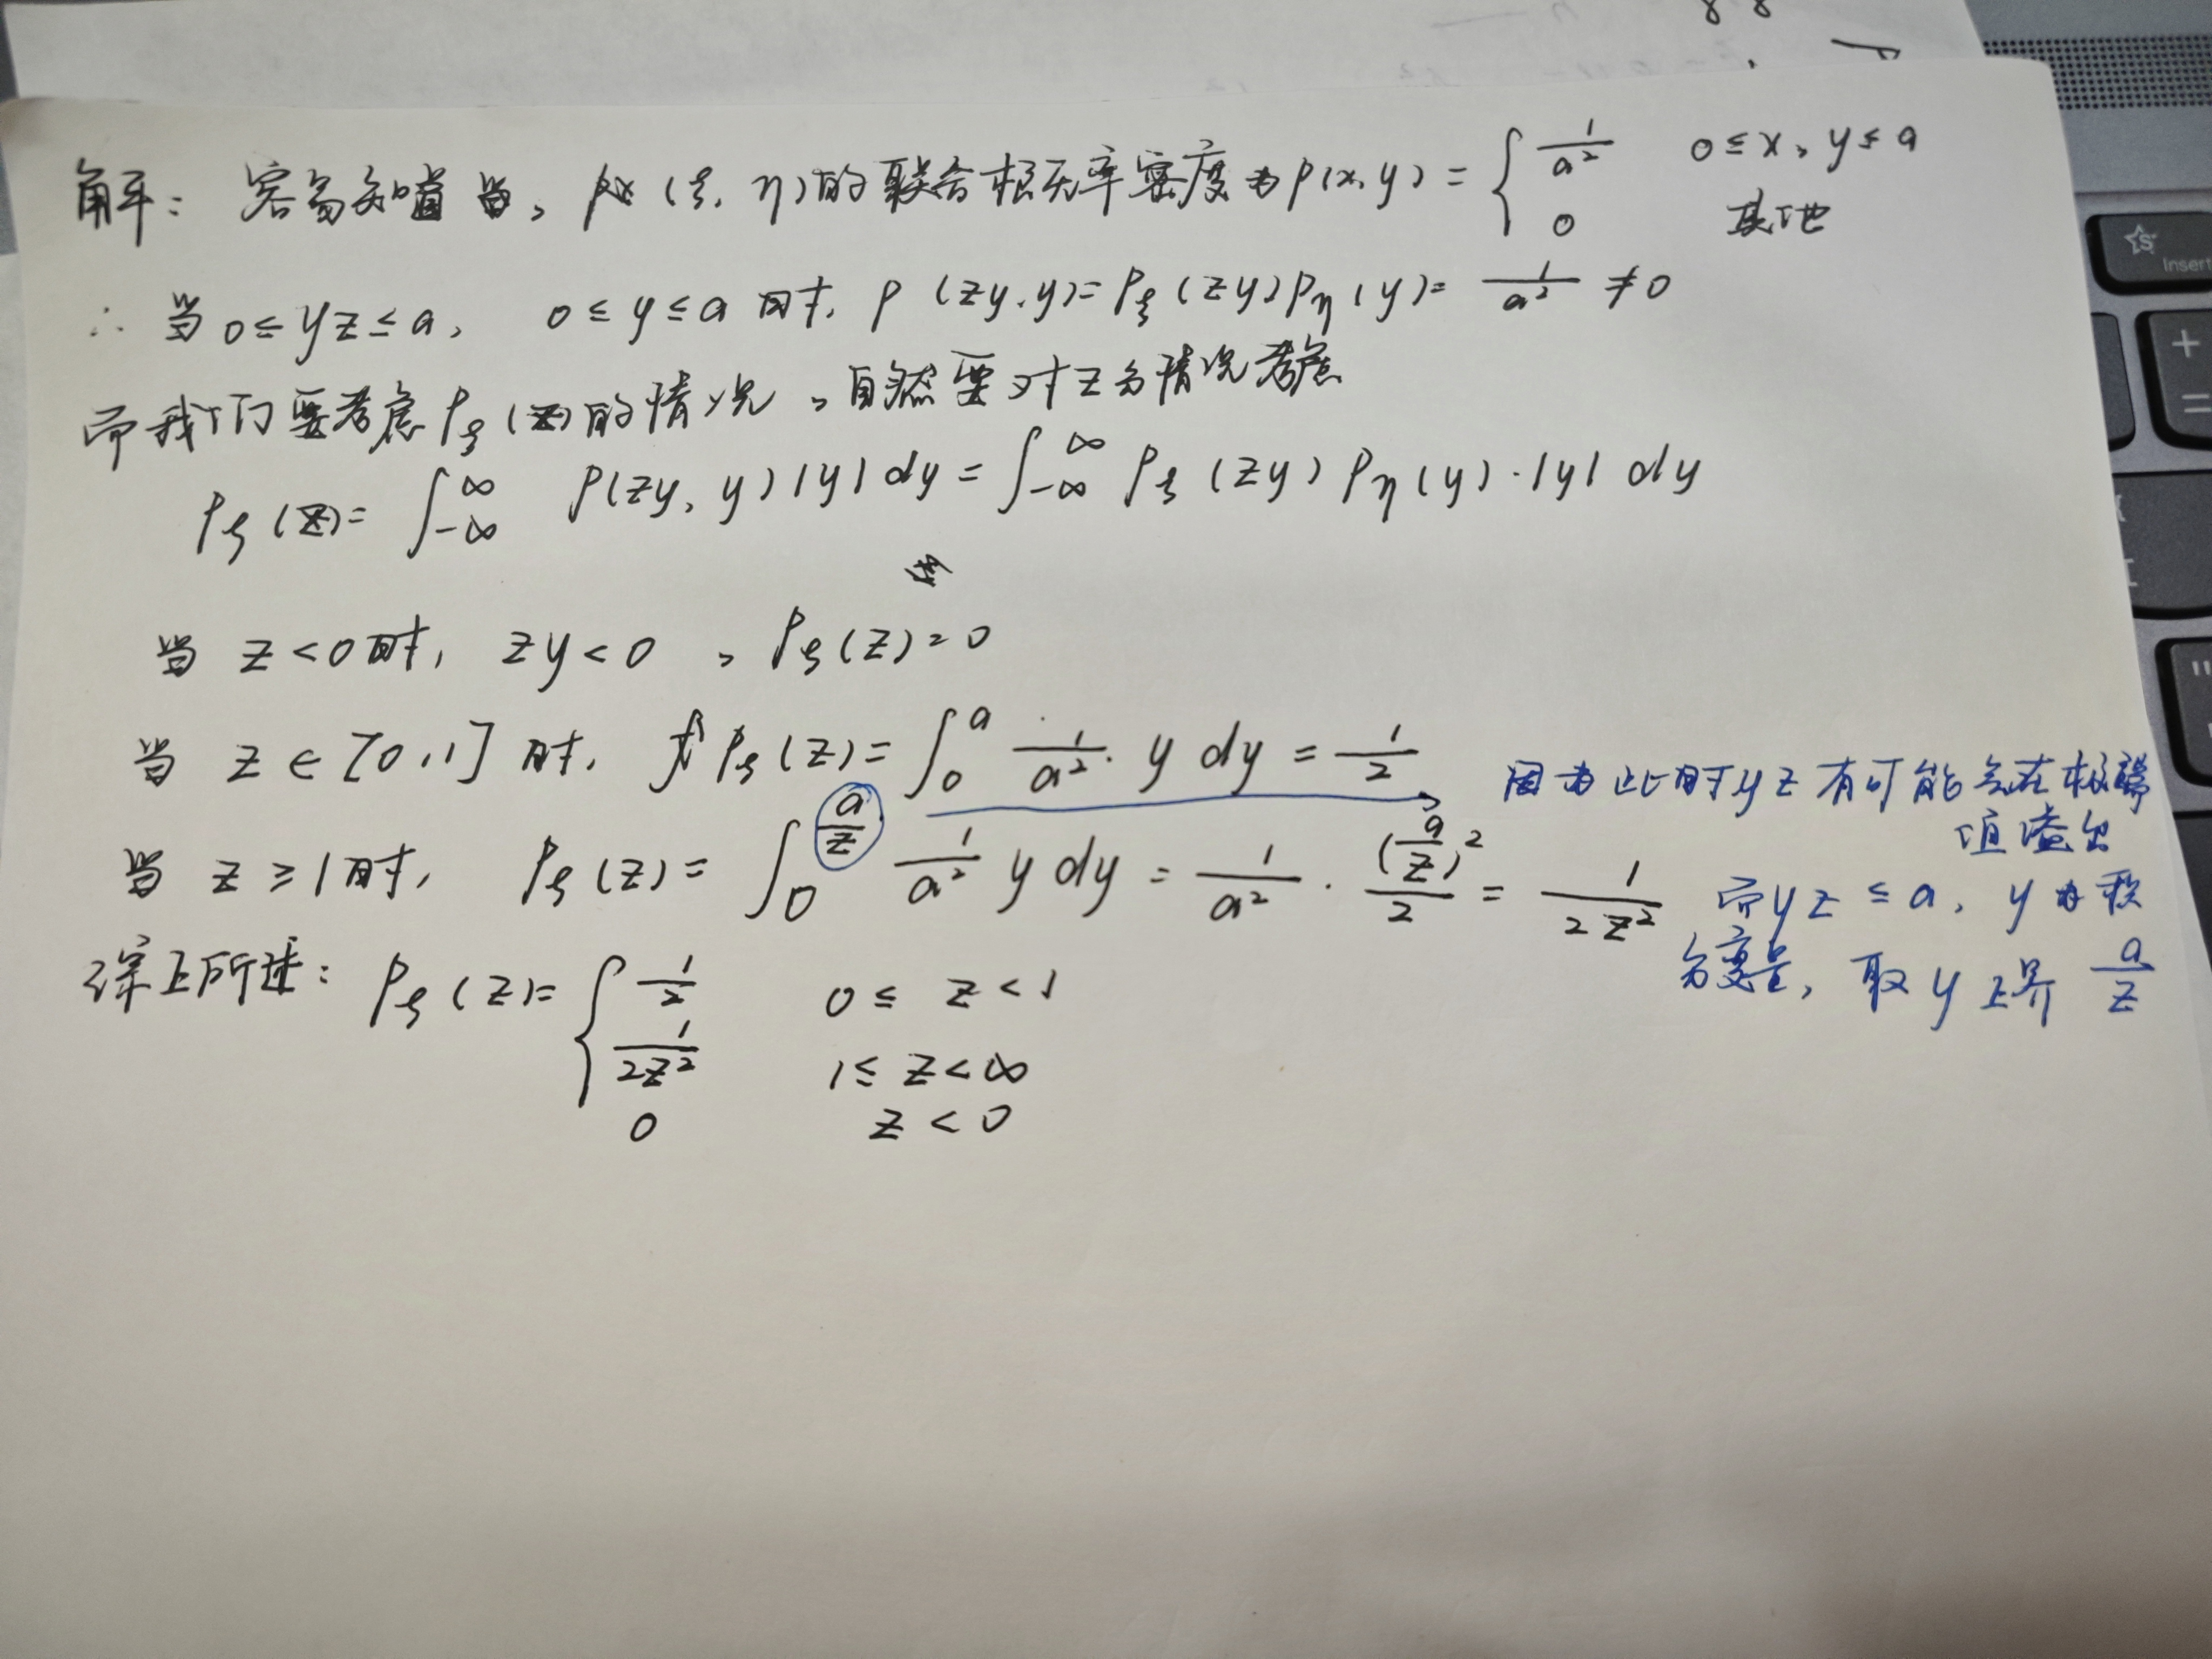 解：容易知道当，(ξ, η)的联合概率密度为p(x, y) = { 1/a² 0≤x, y≤a
0 其他
∴ 当 0≤yz≤a, 0≤y≤a时, p(zy, y)=pξ(zy)pη(y)= 1/a² ≠0
而我们要考虑pζ(z)的情况，自然要对z分情况考虑
pζ(z)= ∫_{-∞}^{∞} p(zy, y)|y|dy = ∫_{-∞}^{∞} pξ(zy) pη(y)·|y| dy
当 z<0时, zy<0 , pζ(z)=0
当 z∈[0,1] 时, pζ(z)= ∫_0^a 1/a² · y dy = 1/2
当 z≥1时, pζ(z)= ∫_0^{a/z} 1/a² y dy = 1/a² · (a/z)²/2 = 1/2z²
因为此时yz有可能会在极端
值溢出
而yz≤a, y为积
分变量, 取y上界 a/z
综上所述: pζ(z)= { 1/2 0≤z<1
1/2z² 1≤z<∞
0 z<0
Insert
+
=